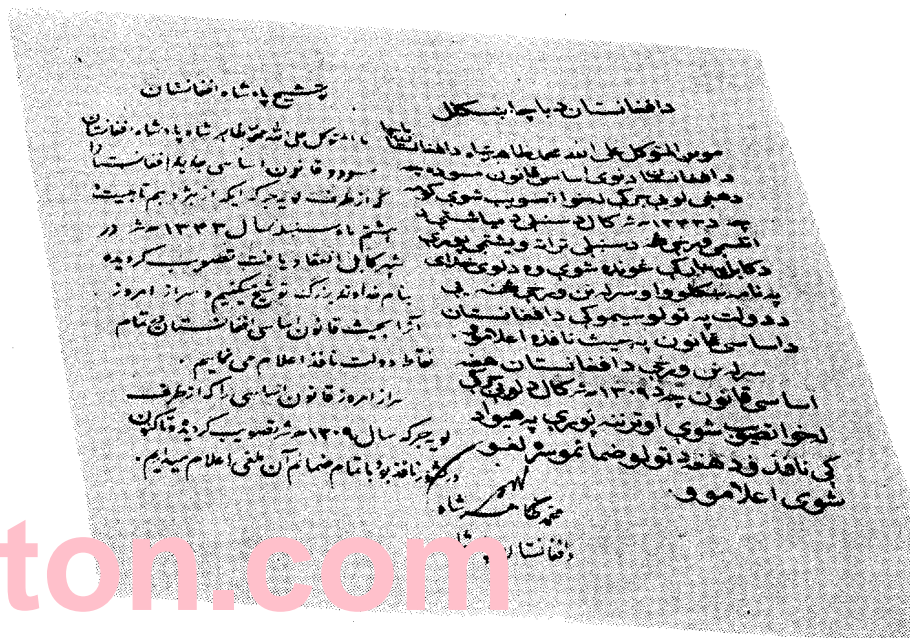 د افغانستان د باچا ښکلل
موږ المتوکل علی الله محمد ظاهر شاه د افغانستان باچا
د افغانستان د نوی اساسی قانون مسوده چه
د هغی لویی جرگی لخوا تصویب شوی ده
چه د ۱۳۴۳ ه ش کال د سنبلی د میاشتی له
اتلسمی ورځی د سنبلی تر نه ویشتمی پوری
د کابل کی غونډه شوی وه د لوی خدای
په نامه ښکلوو او سر له نن ورځی هغه یی
د دولت په ټولو سیمو کی د افغانستان
د اساسی قانون په حیث نافذه اعلاموو.
سر له نن ورځی د افغانستان هغه
اساسی قانون چه د ۱۳۰۹ ه ش کال د لویی جرگی
لخوا تصویب شوی او تر ننه پوری په هیواد
کی نافذ ؤ د هغه د ټولو ضمائمو سره لغو
شوی اعلاموو.
توشیح پادشاه افغانستان
ما المتوکل علی الله محمد ظاهر شاه پادشاه افغانستان
مسوده قانون اساسی جدید افغانستان را
که از طرف لویه جرگه ایکه از هژدهم تا بیست
هشتم ماه سنبله سال ۱۳۴۳ ه ش در
شهر کابل انعقاد یافت تصویب گردیده
بنام خداوند بزرگ توشیح میکنیم و سر از امروز
آنرا بحیث قانون اساسی افغانستان در تمام
نقاط دولت نافذ اعلام می نمایم.
سر از امروز قانون اساسی را که از طرف
لویه جرگه سال ۱۳۰۹ ه ش تصویب گردیده و تاکنون
در کشور نافذ بود با تمام ضمائم آن ملغی اعلام میداریم.
محمد ظاهر شاه
د افغانستان
ton.com